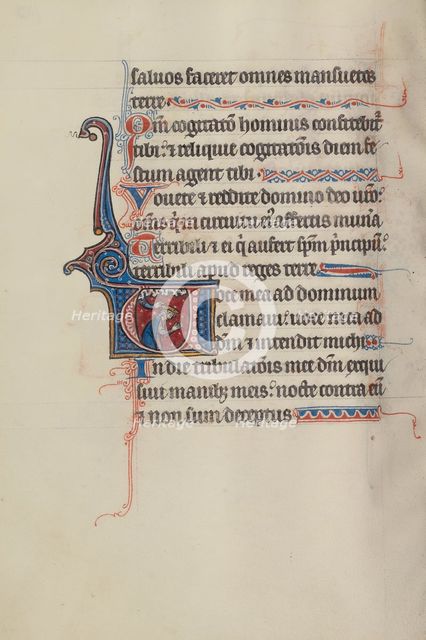 saluos faceret omnes mansuetos
terre.
Qm̄ cogitatō hominis confitebit᷑
tibi: ⁊ reliquie cogitatōis diem fe
stum agent tibi.
Vouete ⁊ reddite domino deo ur̄o:
om̄s qͥ in circuitu eiꝰ affertis mun̄a
Terribili ⁊ ei qͥ aufert sp̄m pͥncipū:
terribili apud reges terre.
Voce mea ad dominum
clamaui: uoce mea ad
dm̄ ⁊ intendit michi
In die tribulatōis mee dm̄ exqui
siui manibꝫ meis: nocte contra eū
⁊ non sum deceptus
Heritage
Heritage
Heritage
Heritage